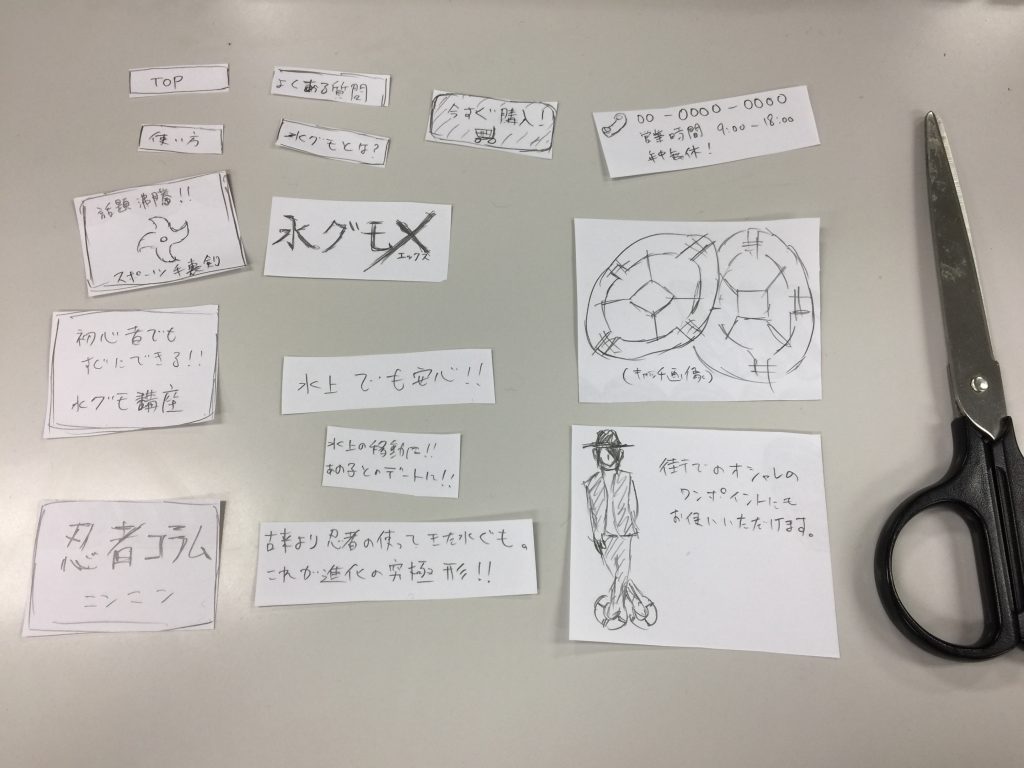 TOP
よくある質問
今すぐ購入!
00-0000-0000
営業時間 9:00-18:00
年中無休!
使い方
水グモとは?
話題沸騰!!
スポーツ手裏剣
水グモX
エックス
(キャッチ画像)
初心者でも
すぐにできる!!
水グモ講座
水上でも安心!!
水上の移動に!!
あの子とのデートに!!
街でのオシャレの
ワンポイントにも
お使いいただけます。
忍者コラム
ニンニン
古来より忍者の使ってきた水ぐも。
これが進化の究極形!!